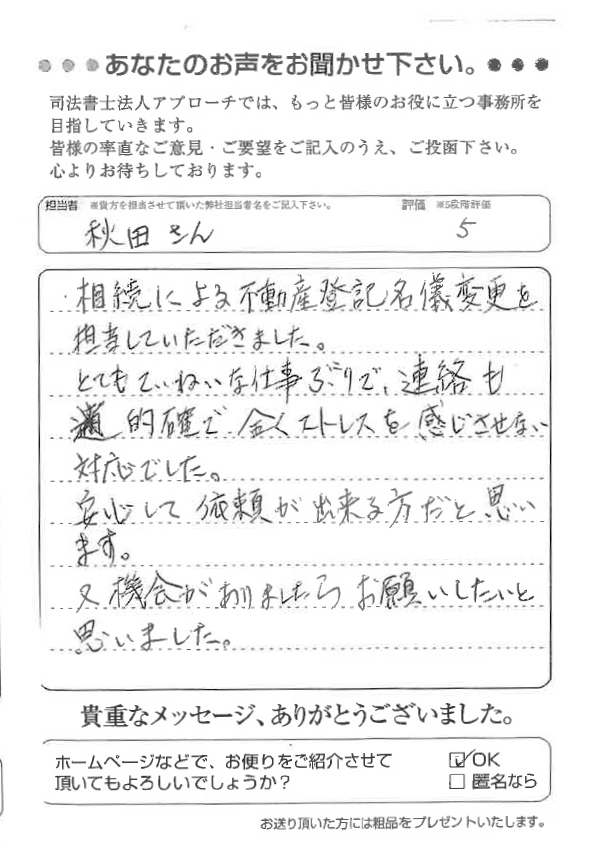 あなたのお声をお聞かせ下さい。
司法書士法人アプローチでは、もっと皆様のお役に立つ事務所を
目指していきます。
皆様の率直なご意見・ご要望をご記入のうえ、ご投函下さい。
心よりお待ちしております。
担当者 ※貴方を担当させて頂いた弊社担当者名をご記入下さい。 評価 ※5段階評価
秋田さん 5
・相続による不動産登記名儀変更を
担当していただきました。
とてもていねいな仕事ぶりで、連絡も
的確で全くストレスを感じさせない
対応でした。
安心して依頼が出来る方だと思い
ます。
又機会がありましたらお願いしたいと
思いました。
貴重なメッセージ、ありがとうございました。
ホームページなどで、お便りをご紹介させて
頂いてもよろしいでしょうか?
☑OK
□匿名なら
お送り頂いた方には粗品をプレゼントいたします。